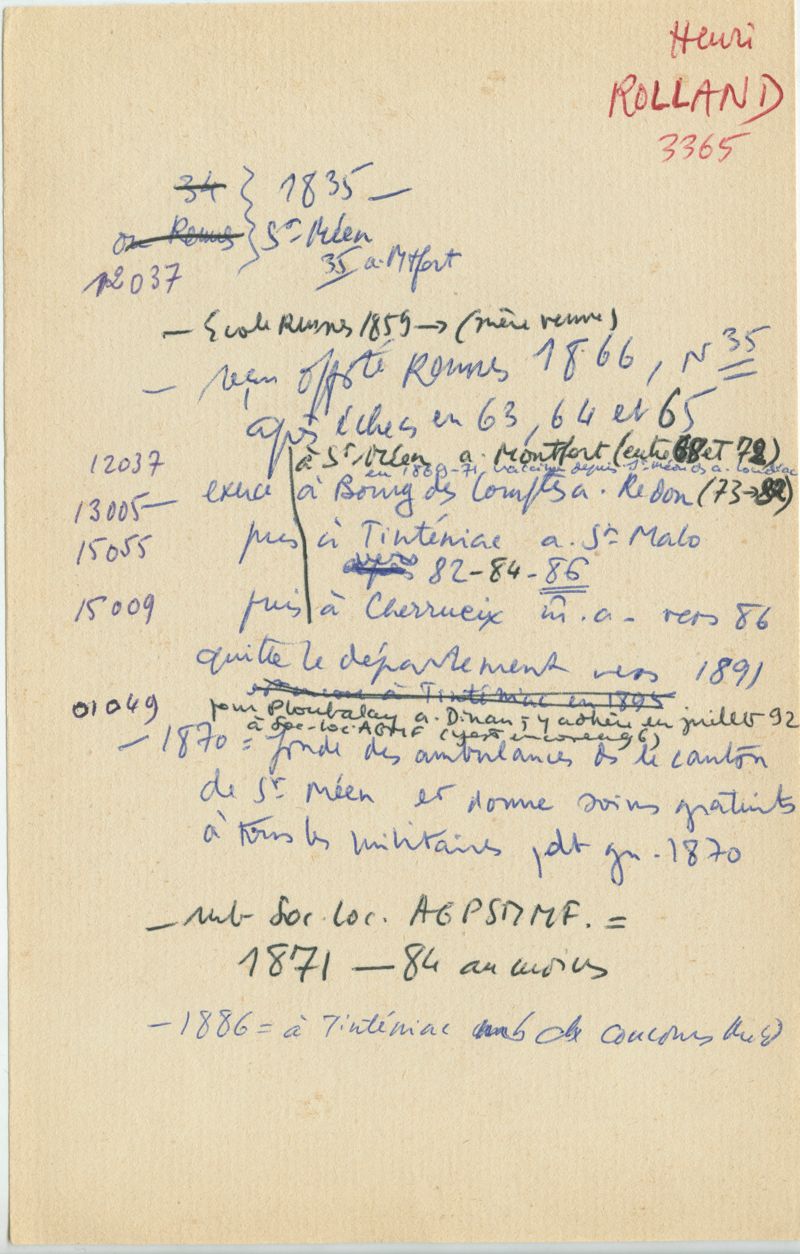 Henri
ROLLAND
3365
34 } 1835 —
ou Rennes } St Méen
35 a. Mtfort
12037
— Ecole Rennes 1859 → (mère veuve)
— reçu offté Rennes 1866, N 35
après échecs en 63, 64 et 65
12037 à St Méen a. Montfort (entre 68 et 72)
en 1869-71, vaccin depuis St Méen ds a.
13005 — exerce à Bourg des Comptes a. Redon (73→82)
15055 puis à Tinténiac a. St Malo
vers 82-84-86
15009 puis à Cherrueix m̄. a - vers 86
quitte le département vers 1891
encore à Tinténiac en 1895
01049 pour Ploubalay a. Dinan ; y adhère en juillet 92
à Soc. loc. AGMF (y est encore en 96)
— 1870 = fonde des ambulances ds le canton
de St Méen et donne soins gratuits
à tous les militaires pdt gu. 1870
— mb Soc. loc. AGPSMMF. =
1871 — 84 au moins
— 1886 = à Tinténiac mb de concours